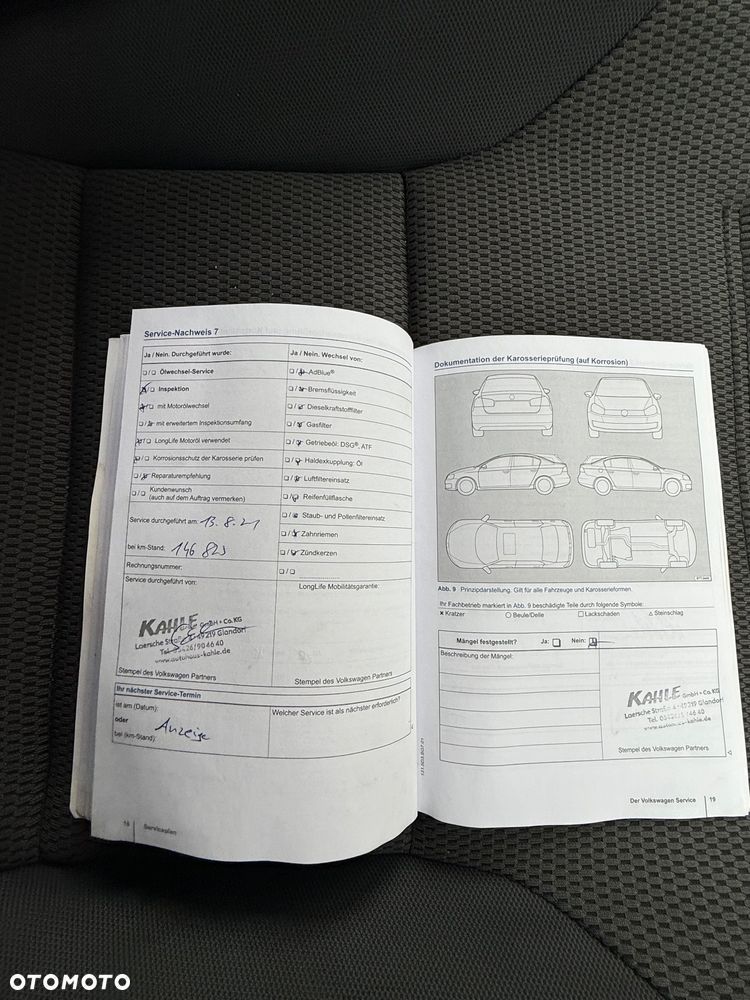 Service-Nachweis 7
Ja / Nein. Durchgeführt wurde:
Ölwechsel-Service
Inspektion
mit Motorölwechsel
mit erweitertem Inspektionsumfang
LongLife Motoröl verwendet
Korrosionsschutz der Karosserie prüfen
Reparaturempfehlung
Kundenwunsch
(auch auf dem Auftrag vermerken)
Service durchgeführt am: 13.8.21
bei km-Stand: 146 823
Rechnungsnummer:
Service durchgeführt von:
KAHLE GmbH + Co. KG
Laersche Straße 4 · 49219 Glandorf
Tel. 05426/90 46 40
www.autohaus-kahle.de
Stempel des Volkswagen Partners
Ja / Nein. Wechsel von:
AdBlue®
Bremsflüssigkeit
Dieselkraftstofffilter
Gasfilter
Getriebeöl: DSG®, ATF
Haldexkupplung: Öl
Luftfiltereinsatz
Reifenfüllflasche
Staub- und Pollenfiltereinsatz
Zahnriemen
Zündkerzen
LongLife Mobilitätsgarantie:
Stempel des Volkswagen Partners
Ihr nächster Service-Termin
ist am (Datum):
oder
bei (km-Stand):
Anzeige
Welcher Service ist als nächster erforderlich?
18 Serviceplan
Dokumentation der Karosserieprüfung (auf Korrosion)
Abb. 9 Prinzipdarstellung. Gilt für alle Fahrzeuge und Karosserieformen.
Ihr Fachbetrieb markiert in Abb. 9 beschädigte Teile durch folgende Symbole:
× Kratzer ○ Beule/Delle □ Lackschaden △ Steinschlag
Mängel festgestellt? Ja: Nein:
Beschreibung der Mängel:
KAHLE GmbH + Co. KG
Laersche Straße 4 · 49219 Glandorf
Stempel des Volkswagen Partners
Der Volkswagen Service 19
OTOMOTO